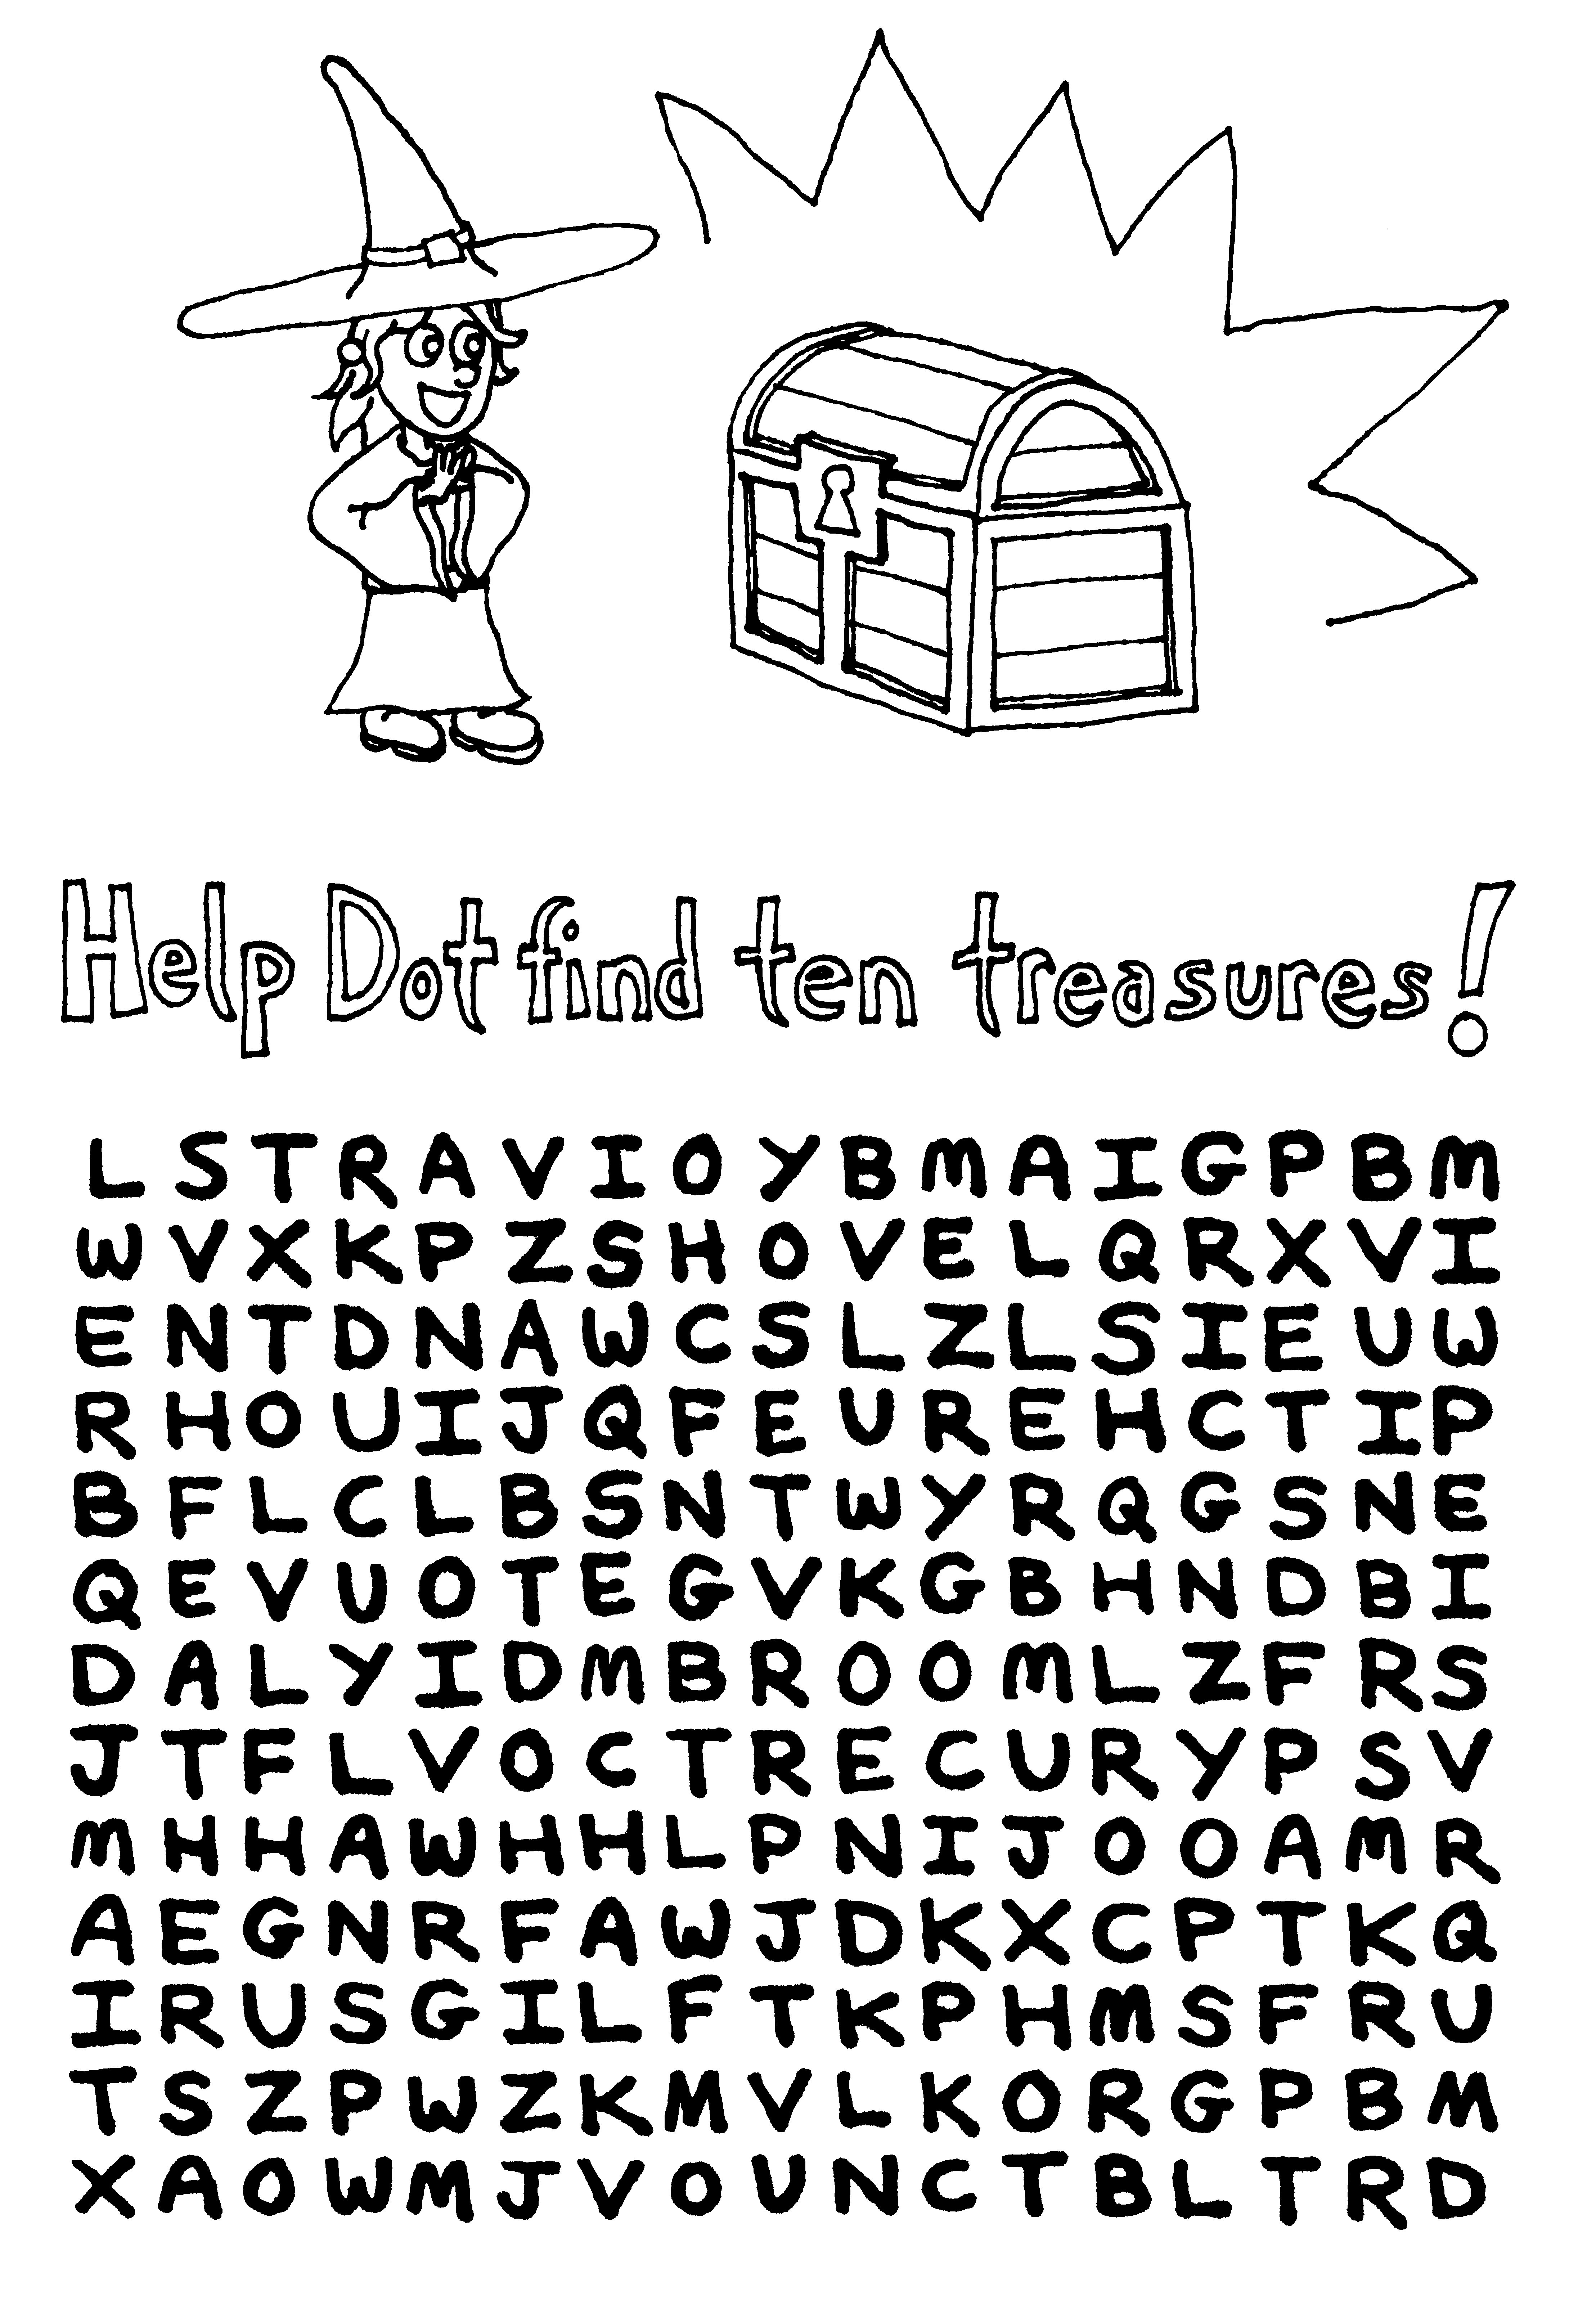 Help Dot find ten treasures!
L S T R A V I O Y B M A I G P B M
W V X K P Z S H O V E L Q R X V I
E N T D N A W C S L Z L S I E U W
R H O U I J Q F E U R E H C T I P
B F L C L B S N T W Y R Q G S N E
Q E V U O T E G V K G B H N D B I
D A L Y I D M B R O O M L Z F R S
J T F L V O C T R E C U R Y P S V
M H H A W H H L P N I J O O A M R
A E G N R F A W J D K X C P T K Q
I R U S G I L F T K P H M S F R U
T S Z P W Z K M V L K O R G P B M
X A O W M J V O U N C T B L T R D